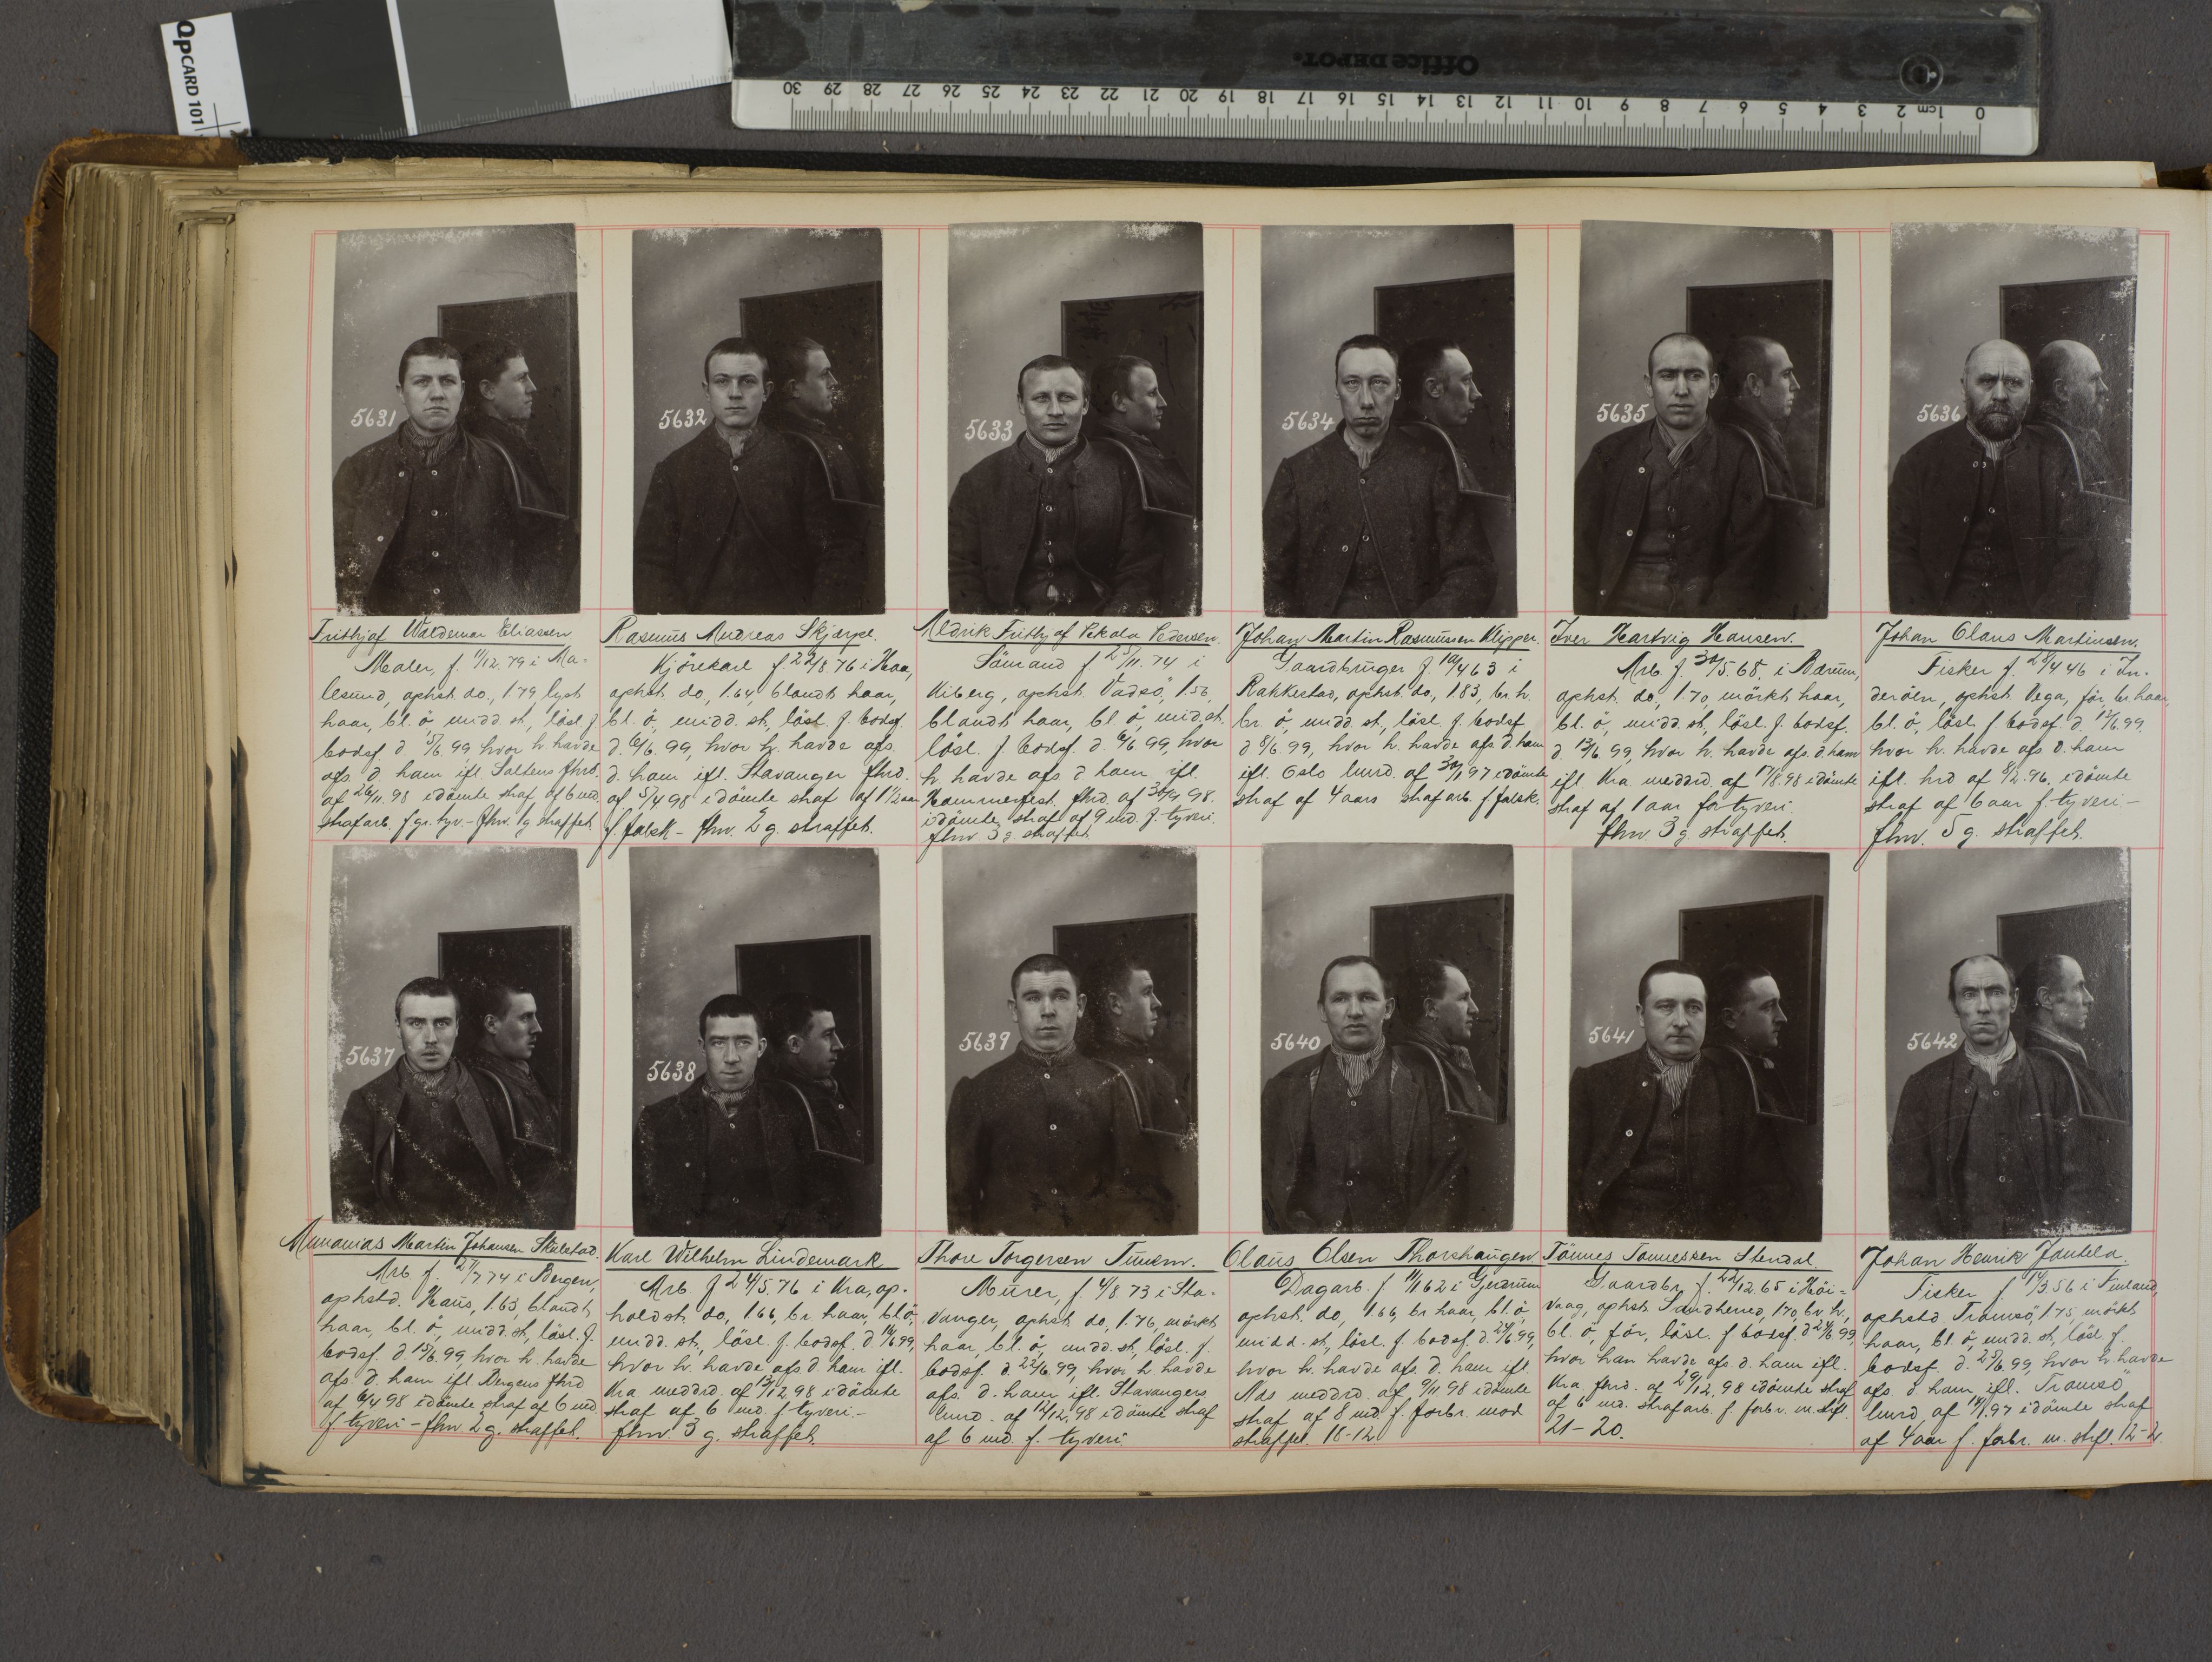 QPCARD 101
Office DEPOT.
0 1cm 2 3 4 5 6 7 8 9 10 11 12 13 14 15 16 17 18 19 20 21 22 23 24 25 26 27 28 29 30
5631
Frithjof Waldemar Eliassen
Maler, f. 11/12.79 i Aa=
lesund, ophst. do., 1.79 lyst
haar, bl. ö, midd. st, lösl. f
bodsf. d 5/6.99 hvor h. havde
afs. d. ham ifl. Saltens fhrd.
af 26/11.98 idömte straf af 6 md.
strafarb. f. gr. tyv. - fhv. 1 g straffet.
5632
Rasmus Andreas Skjærpe.
Kjörekarl f 22/8 76 i Haa,
ophst. do, 1.64, blandt haar,
bl. ö, midd. st, lösl. f. bodsf.
d. 6/6.99, hvor h. havde afs.
d. ham ifl. Stavanger fhrd.
af 5/4 98 idömte straf af 1 1/2 aar
f. falsk - fhv. 2 g. straffet.
5633
Aldrik Frithjof Pekola Pedersen.
Sömand f 25/11.74 i
Kiberg, ophst. Vadsö, 1.56
blandt haar, bl. ö, mid. st.
lösl. f. bodsf. d. 6/6 99, hvor
h. havde afs d ham ifl.
Hammerfest fhrd. af 30/9 98.
idömte straf af 9 md. f. tyveri.
fhv 3 g. straffet.
5634
Johan Martin Rasmussen Klipper.
Gaardbruger f. 10/4 63 i
Rakkestad, ophst. do., 1.83, br. h.
br. ö, midd. st, lösl. f. bodsf
d 8/6 99, hvor h. havde afs. d. ham
ifl. Oslo lmrd. af 30/1 97 idömte
straf af 4 aars strafarb. f falsk.
5635
Iver Hartvig Hansen.
Arb. f. 30/5.68. i Bærum,
ophst. do, 1.70, mörkt haar,
bl. ö, midd. st, lösl. f. bodsf.
d 13/6 99, hvor h. havde afs. d. ham
ifl. Kra meddrd. af 17/8.98 idömte
straf af 1 aar for tyveri.
fhv. 3 g. straffet.
5636
Johan Claus Martinsen.
Fisker f. 28/4 46 i In-
deröen, ophst. Vega, för, br. haar,
bl. ö, lösl. f bodsf d. 12/6 99.
hvor h. havde afs d. ham
ifl. hrd af 8/2.96, idömte
straf af 6 aar f. tyveri -
fhv. 5 g. straffet.
5637
Annanias Martin Johansen Skulstad.
Arb. f. 27/7 74 i Bergen,
ophstd. Haus, 1.63, blandt
haar, bl. ö, midd. st, lösl. f.
bodsf. d 15/6.99, hvor h. havde
afs. d. ham ifl. Bergens fhrd
af 6/4 98 idömte straf af 6 md.
f. tyveri - fhv. 2 g. straffet.
5638
Karl Wilhelm Lindemark
Arb. f 24/5.76 i Kra, op-
holdst. do, 1.66, br haar, bl. ö,
midd. st, lösl. f. bodsf. d. 16/6 99,
hvor h. havde afs d. ham ifl.
Kra meddrd. af 13/12.98 idömte
straf af 6 md. f tyveri. -
fhv 3 g. straffet.
5639
Thore Torgersen
Murer, f. 4/8 73 i Sta-
vanger, ophst do, 1.76, mörkt
haar, bl. ö, midd. st, lösl. f.
bodsf. d 22/6 99, hvor h. havde
afs. d. ham ifl. Stavangers
lmrd. af 12/12.98 idömte straf
af 6 md. f. tyveri
5640
Olaus Olsen Thorshaugen
Dagarb. f 11/1 62 i Gjerdrum
ophst. do, 1.66, br haar, bl. ö
midd. st, lösl. f bodsf. d. 24/6 99,
hvor h. havde afs. d. ham ifl
Nds meddrd. af 9/11 98 idömte
straf af 8 md. f. forbr. mod
straffel. 18-12.
5641
Tönnes Tonnessen Stendal.
Gaardbr. f. 22/12.65 i Höi=
vaag, ophst. Sandherred, 1.70, br. h,
bl. ö, för, lösl. f bodsf. d 24/6 99,
hvor han havde afs. d. ham ifl.
Kra fhrd. af 29/12.98 idömte straf
af 6 md. strafarb. f. forbr. m. stfl.
21-20.
5642
Johan Henrik Jantela.
Fisker f. 14/3.56 i Finland,
ophstd Tromsö, 1.75, mörkt
haar, bl. ö, midd. st, lösl. f.
bodsf. d. 25/6.99, hvor h. havde
afs. d. ham ifl. Tromsö
lmrd. af 18/1.97 idömte straf
af 4 aar f. forbr. m. strfl. 12-2.